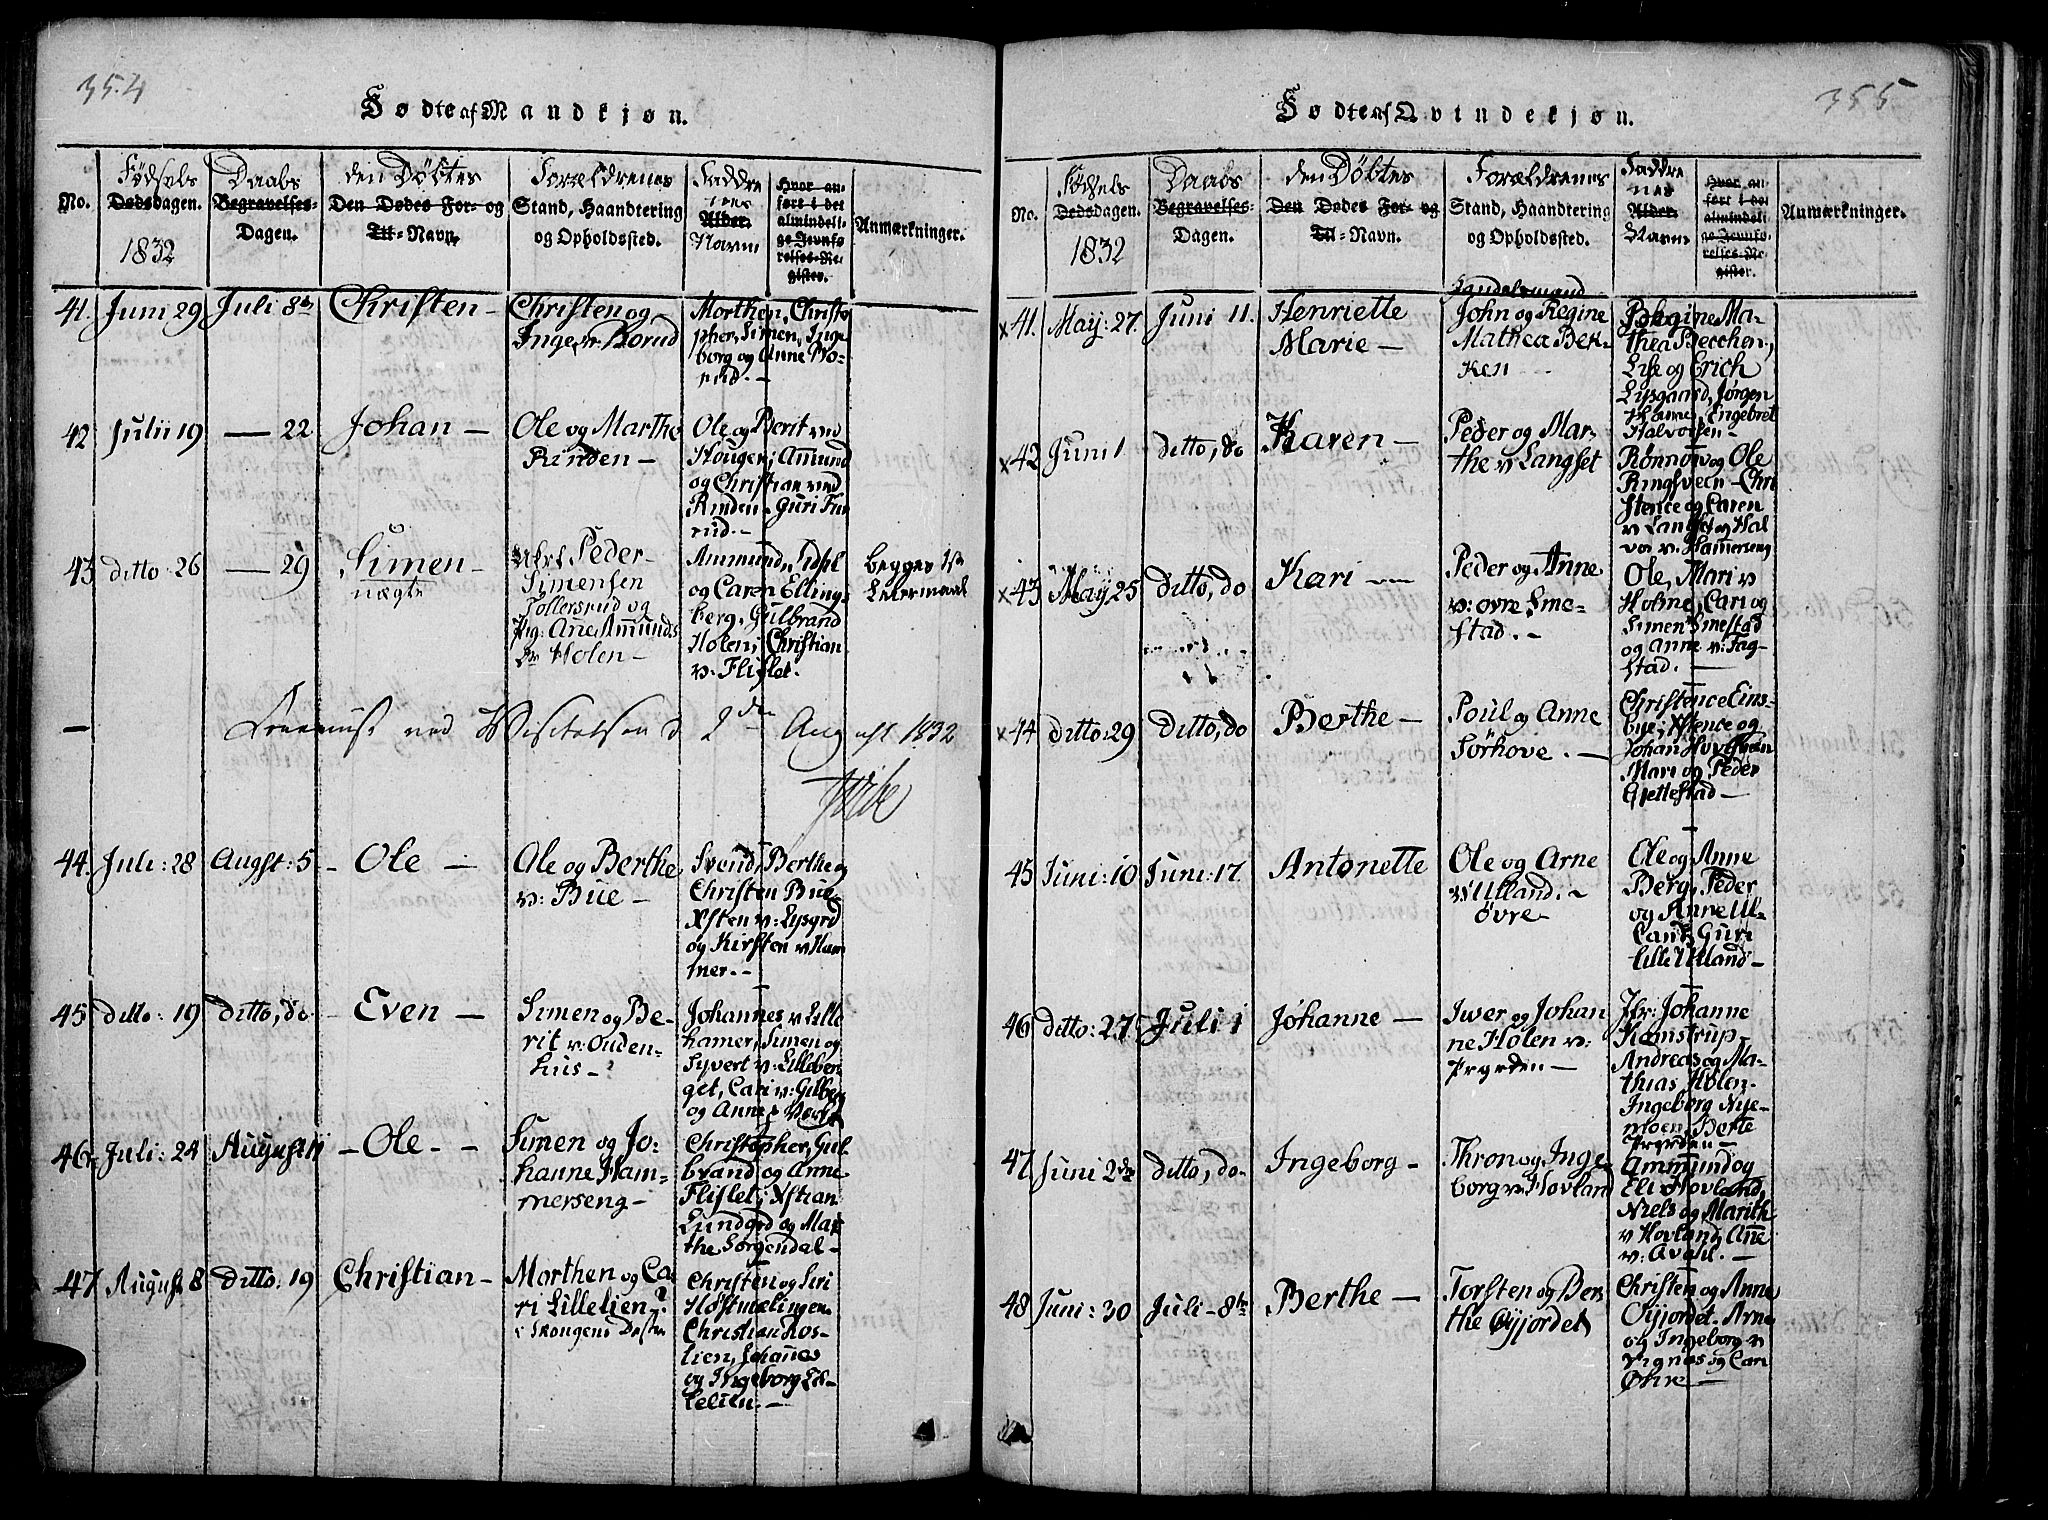 354
Fødte af Mandkjøn.
No.
Fødsels
Dødsdagen.
1832
Daabs
Begravelses-
Dagen.
den Døbtes
Den Dødes For- og
Til-Navn.
Forældrenes
Stand, Haandtering
og Opholdssted.
Faddre
nes
Alder.
Navne
Hvor an-
ført i det
almindeli-
ge Jevnfø-
relses-Re-
gister.
Anmærkninger.
41. Juni 29 Juli 8de Christen -
Christen og
Inger v: Borud
Morthen, Christo
pher, Simen, Inge
borg og Anne Bo-
rud. -
42 Julii 19 — 22 Johan -
Ole og Marthe
Rinden -
Ole og Berit ved
Houger, Amund
og Christian ved
Rinden. Guri Fur
rud. -
43 ditto: 26 — 29 Simen -
nægte
Peder
Simensen
Tollersrud og
Pig: Anne Amunds
Dr Holen -
Ammund, Sidsel
og Caren Elling-
berg, Gulbrand
Holen, Christian
v: Flislet.
begges 1ste
Leiermaal
ved Visitatsen d 2den August 1832
44. Juli: 28 Augst: 5 - Ole -
Ole og Berthe
v: Bue -
Svend, Berthe og
Christen Bue
Xsten v: Lysgrd
og Kirsten v Ham
mer. -
45 ditto: 19 ditto, do - Even -
Simen og Be-
rit v: Ouden-
hus -
Johannes v Lille
hamer, Simen og
Syvert v: Lilleber
get, Cari v: Gilberg
og Anne
46 Juli: 24 August 11 - Ole - -
Simen og Jo-
hanne Ham-
merseng -
Christopher, Gul
brand og Anne
Flislet, Xstian
Lundgrd og Mar
the Sørgendal -
47 August 8 ditto: 19 Christian -
Morthen og Ca
ri Lillelien
Christen og Siri
Høstmælingen
Christian Ros-
lien, Johannes
og Ingeborg Lil-
lelien. -
355
Fødte af Qvindekjøn.
No.
Fødsels
Dødsdagen.
1832
Daabs
Begravelses-
Dagen.
den Døbtes
Den Dødes For- og
Til-Navn.
Forældrenes
Stand, Haandtering
og Opholdssted.
Faddre
nes
Alder.
Navne
Hvor an-
ført i det
almindeli-
ge Jevnfø-
relses-Re-
gister.
Anmærkninger.
x 41. May: 27. Juni 11. Henriette
Marie -
Handelsmand
John og Regine
Mathea Bek-
ken
Regine Ma-
thea Becchen,
Lise og Erich
Lysgaard, Jørgen
Engebret
Halvorsen -
x 42 Juni 1 ditto, do Karen -
Peder og Mar-
the v Langset
Rønnov og Ole
Ringsveen - Chri
stence og Caren
v Langset og Hal
vor v: Hamerseng
x 43 May 25 ditto, do Kari -
Peder og Anne
v: øvre Sme-
stad. -
Ole, Mari v
Holme, Cari og
Simen Smestad
og Anne v: Fag-
stad. -
x 44 ditto: 29 ditto, do Berthe -
Poul og Anne
Sørhove. -
Christence Eins-
bye; Xstence og
Johan
Mari og Peder
Gjettestad -
45 Juni: 10 Juni: 17. Antonette
Ole og Arne
v: Ulland. -
Øvre -
Ole og Anne
Berg, Peder
og Anne Ul-
land, Guri
lille Ulland -
46 ditto: 27 Juli 1 Johanne -
Iwer og Johan
ne Holen v:
Prgrden -
Jfr: Johanne
Kamstrup
Andreas og Ma-
thias Holen.
Ingeborg Nye-
moen, Berte
Prgrden -
47 Juni 2de ditto, do. Ingeborg -
Thron og Inge
borg v: Hovland
Ammund og
Eli Hovland,
Niels og Marith
v Hovland, Anne
v: Avahl. -
48 Juni: 30 Juli - 8de Berthe -
Torsten og Ber
the Øyjordet
Christen og Anne
Oyjordet. Arne
og Ingeborg v
Vignæs og Cari
Øhre -